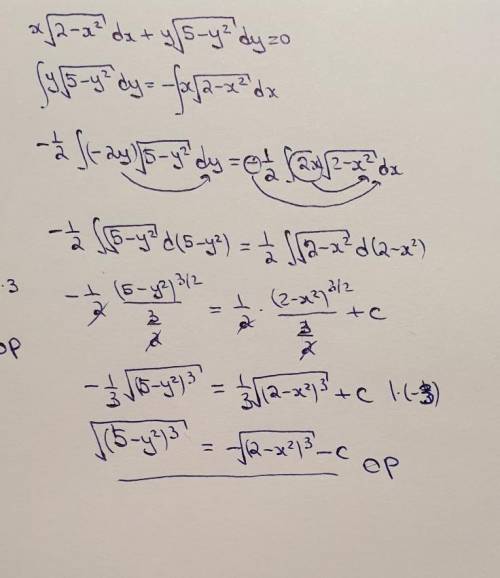 x√(2-x²) dx + y√(5-y²) dy = 0
∫y√(5-y²) dy = -∫x√(2-x²) dx
-1/2 ∫(-2y)√(5-y²) dy = -1/2 ∫2x√(2-x²) dx
-1/2 ∫√(5-y²) d(5-y²) = 1/2 ∫√(2-x²) d(2-x²)
·3
-1/2 (5-y²)^(3/2)/(3/2) = 1/2 · (2-x²)^(3/2)/(3/2) + C
OP
-1/3 √((5-y²)³) = 1/3 √((2-x²)³) + C |·(-3)
√((5-y²)³) = -√((2-x²)³) - C OP